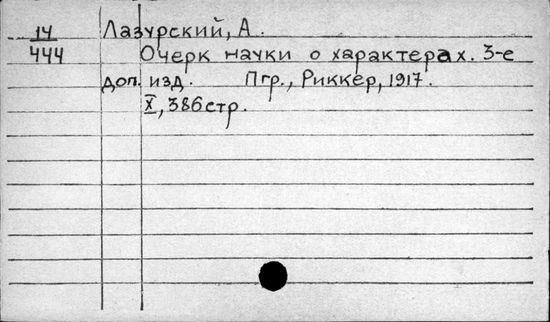 14 Лазурский, А.
444 Очерк науки о характерах. 3-е
доп. изд. Пгр., Риккер, 1917.
X, 386 стр.